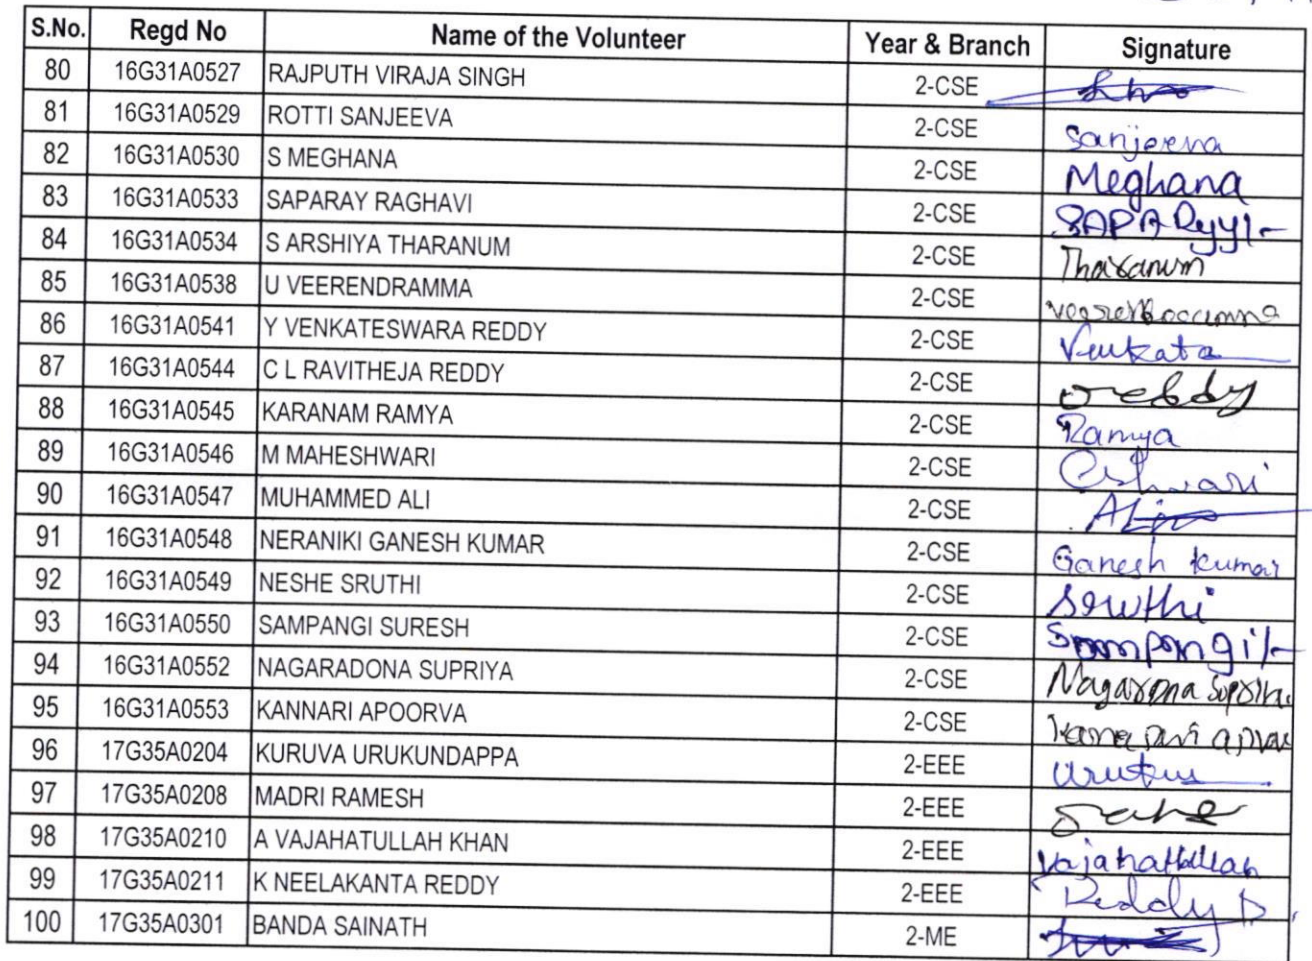 S.No. Regd No Name of the Volunteer Year & Branch Signature
80 16G31A0527 RAJPUTH VIRAJA SINGH 2-CSE
81 16G31A0529 ROTTI SANJEEVA 2-CSE Sanjeeva
82 16G31A0530 S MEGHANA 2-CSE Meghana
83 16G31A0533 SAPARAY RAGHAVI 2-CSE
84 16G31A0534 S ARSHIYA THARANUM 2-CSE Tharanum
85 16G31A0538 U VEERENDRAMMA 2-CSE
86 16G31A0541 Y VENKATESWARA REDDY 2-CSE Venkata
87 16G31A0544 C L RAVITHEJA REDDY 2-CSE reddy
88 16G31A0545 KARANAM RAMYA 2-CSE Ramya
89 16G31A0546 M MAHESHWARI 2-CSE Eshwari
90 16G31A0547 MUHAMMED ALI 2-CSE
91 16G31A0548 NERANIKI GANESH KUMAR 2-CSE Ganesh kumar
92 16G31A0549 NESHE SRUTHI 2-CSE Sruthi
93 16G31A0550 SAMPANGI SURESH 2-CSE Sampangi/-
94 16G31A0552 NAGARADONA SUPRIYA 2-CSE
95 16G31A0553 KANNARI APOORVA 2-CSE
96 17G35A0204 KURUVA URUKUNDAPPA 2-EEE
97 17G35A0208 MADRI RAMESH 2-EEE
98 17G35A0210 A VAJAHATULLAH KHAN 2-EEE Vajahatullah
99 17G35A0211 K NEELAKANTA REDDY 2-EEE Reddy
100 17G35A0301 BANDA SAINATH 2-ME